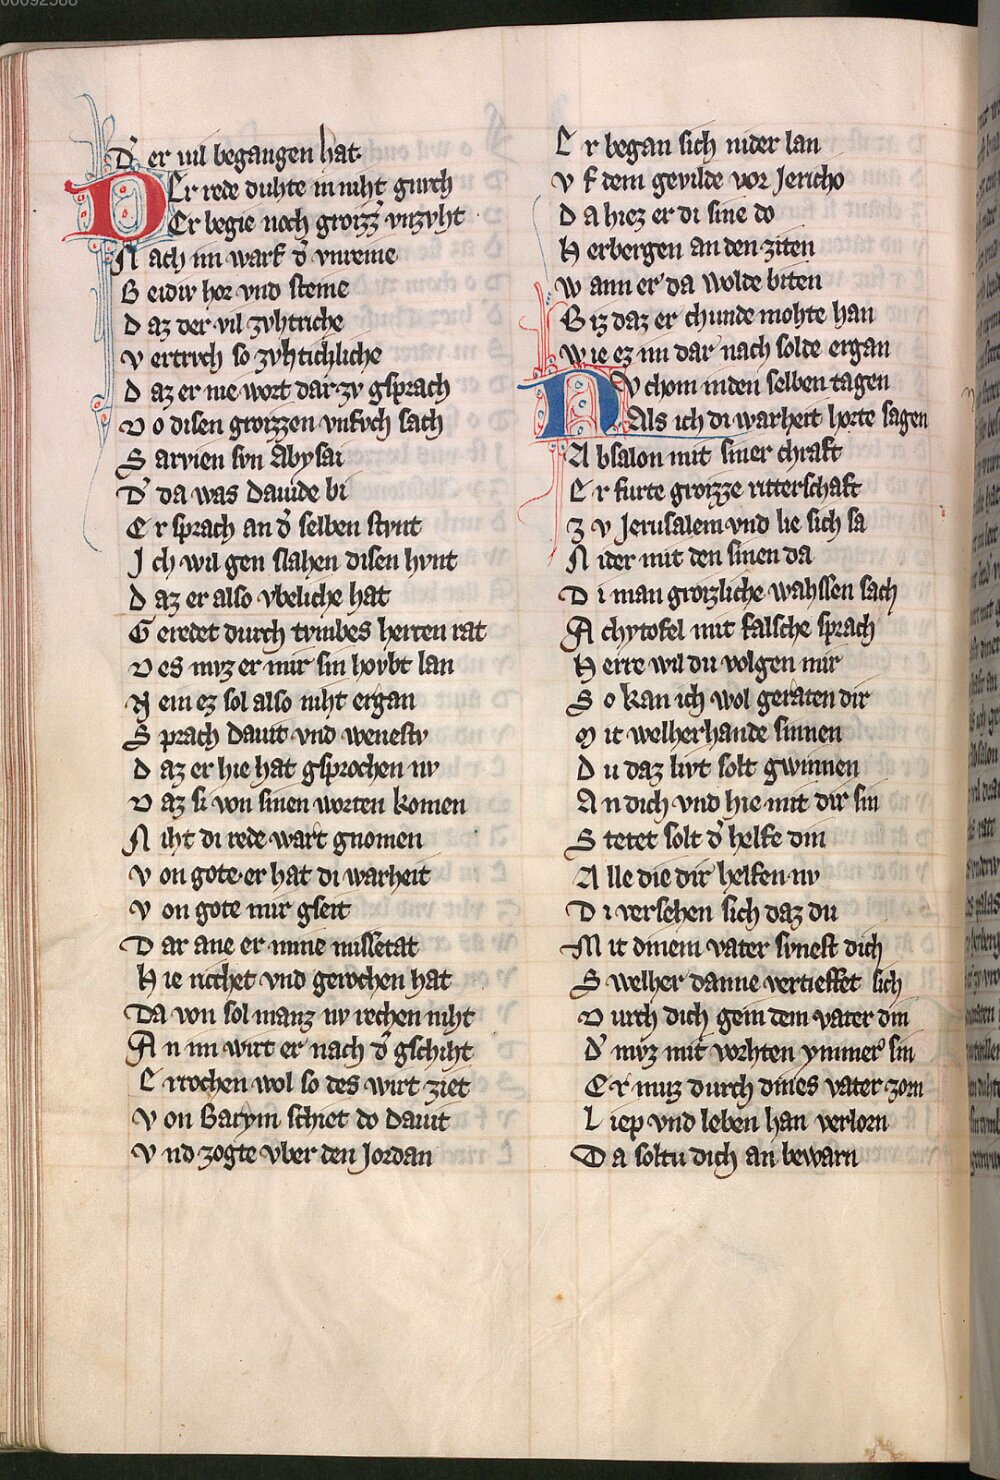 00092588
D' er uil begangen hat
DEr rede duhte in niht gnuch
Er begie noch groizz vnzvht
N ach im warf d' vnreine
B eidiv hor vnd steine
D az der vil zvhtriche
V ertrvch so zvhtichliche
D az er nie wort dar zv gsprach
D o disen groizzen vnfvch sach
S arvien svn Abysai
D' da was Dauide bi
E r sprach an d' selben stvnt
I ch wil gen slahen disen hvnt
D az er also vbeliche hat
G eredet durch tvmbes herren rat
D es mvz er mir sin hovbt lan
N ein ez sol also niht ergan
S prach Dauit vnd wenestv
D az er hie hat gsprochen nv
D az si von sinen worten komen
N iht di rede wart gnomen
V on gote er hat di warheit
V on gote mir gseit
D ar ane er mine missetat
H ie richet vnd gerochen hat
Da von sol manz nv rechen niht
A n im wirt er nach d' gschiht
E rrochen wol so des wirt ziet
V on Barym schiet do Dauit
V nd zogte vber den Jordan
E r began sich nider lan
V f dem gevilde vor Jericho
D a hiez er di sine do
H erbergen an den ziten
W ann er da wolde biten
B iz daz er chunde mohte han
W ie ez im dar nach solde ergan
NV chom inden selben tagen
Als ich di warheit horte sagen
A bsalon mit siner chraft
E r furte groizze ritterschaft
Z v Jerusalem vnd lie sich sa
N ider mit den sinen da
D i man groizliche wahssen sach
A chytofel mit falsche sprach
H erre wil du volgen mir
S o kan ich wol geraten dir
M it welherhande sinnen
D u daz livt solt gwinnen
A n dich vnd hie mit dir sin
S tetet solt d' helfe din
A lle die dir helfen nv
D i versehen sich daz du
M it dinem vater svnest dich
S welher danne vertieffet sich
D urch dich gein dem vater din
D' mvz mit vorhten ymmer sin
E r muz durch dines vater zorn
L iep vnd leben han verlorn
D a soltu dich an bewarn